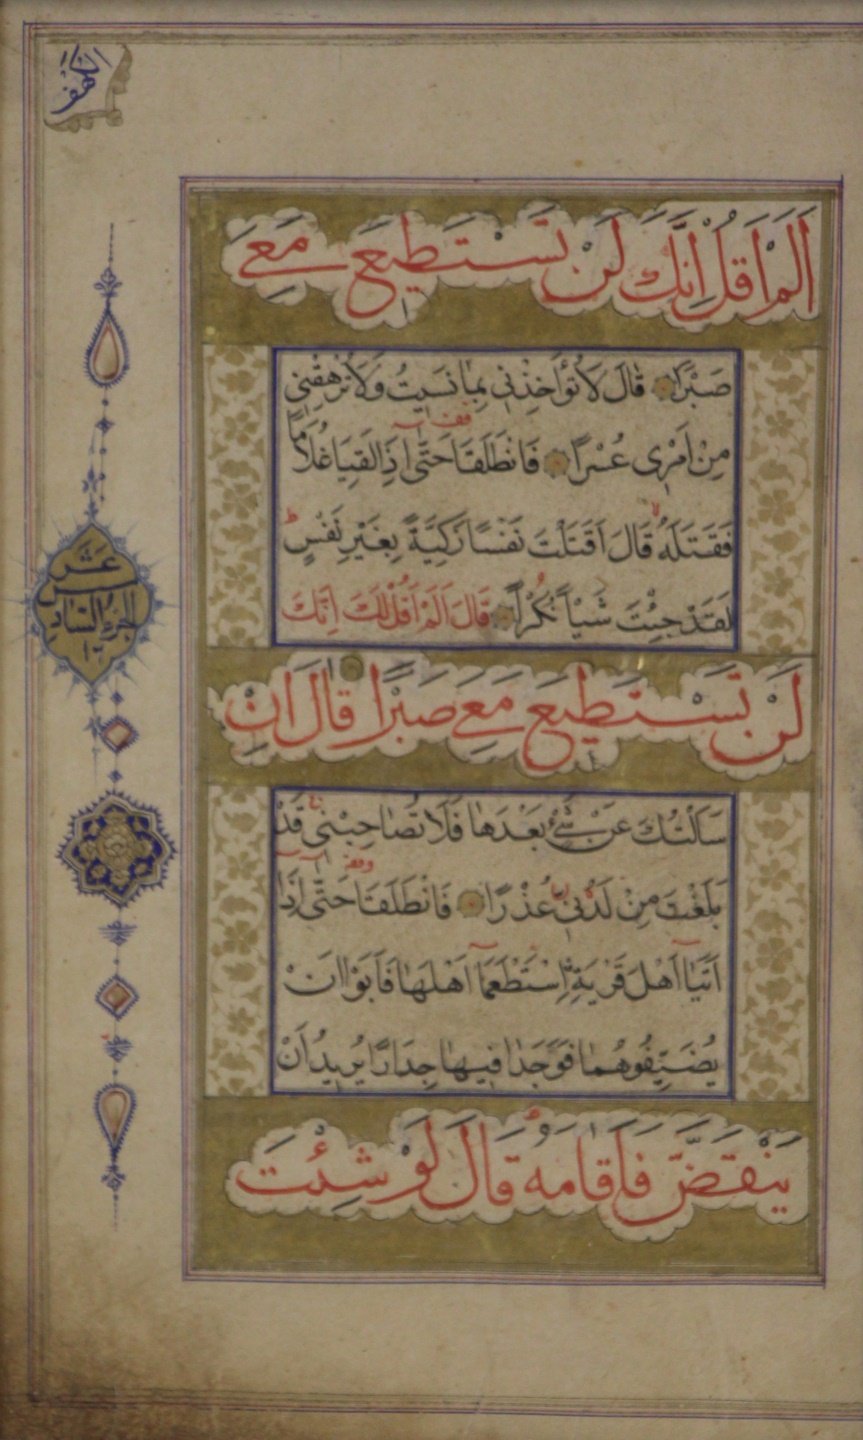 الكهف
اَلَمْ اَقُلْ اِنَّكَ لَنْ تَسْتَطيعَ مَعِىَ
صَبْرًا قالَ لَا تُؤاخِذْنى بِمٰا نَسيتُ وَلَا تُرْهِقْنى
مِنْ اَمْرى عُسْرًا فَانْطَلَقَا حَتّٰى اِذَا لَقِيَا غُلَامًا
فَقَتَلَهُ قَالَ اَقَتَلْتَ نَفْسًا زَكِيَّةً بِغَيْرِ نَفْسٍ
لَقَدْ جِئْتَ شَيْـًٔا نُكْرًا قَالَ اَلَمْ اَقُلْ لَكَ اِنَّكَ
الجزء السادس
عشر
١٦
لَنْ تَسْتَطيعَ مَعِىَ صَبْرًا قالَ اِنْ
سَاَلْتُكَ عَنْ شَىْءٍ بَعْدَهٰا فَلَا تُصٰاحِبْنى قَدْ
بَلَغْتَ مِنْ لَدُنّى عُذْرًا فَانْطَلَقَا حَتّٰى اِذَا
اَتَيٰا اَهْلَ قَرْيَةٍ اِسْتَطْعَمٰا اَهْلَهٰا فَاَبَوْا اَنْ
يُضَيِّفُوهُمٰا فَوَجَدٰا فيهٰا جِدَارًا يُريدُ اَنْ
يَنْقَضَّ فَاَقَامَهُ قَالَ لَوْ شِئْتَ